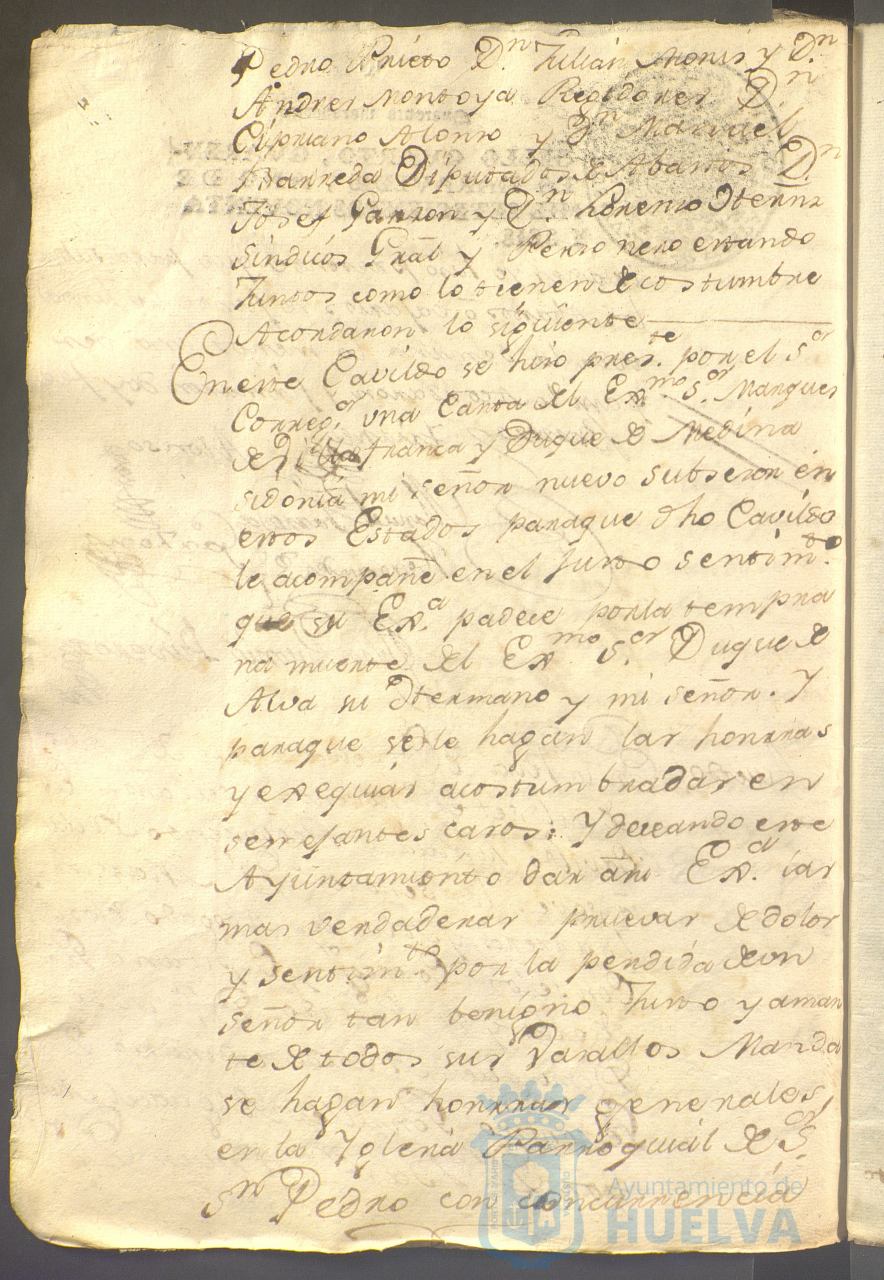 Pedro Prieto Dn. Julián Monis y Dn.
Andres Montoya Regidores Dn
Cipriano Alonso y Dn Manuel
Barreda Diputados de Abastos Dn
Josef Garzon y Dn. Lorenzo Hernz
Sindicos Gral y Personero estando
Juntos como lo tienen de costumbre
Acordaron lo siguiente
En este Cavildo se hizo preste. por el Sor
Correg.or una Carta del Exmo. Sor. Marques
de Villafranca y Duque de Medina
sidonia mi señor nuevo subsesor en
estos Estados paraque dho Cavildo
le acompañe en el justo sentimto.
que su Exa. padece por la tempra
na muerte del Exmo Sor. Duque de
Alva su Hermano y mi señor. Y
paraque se le hagan las honrras
y exequias acostumbradas en
semejantes casos: Y deseando este
Ayuntamiento dar a su Exa. las
mas verdaderas pruevas de dolor
y sentimto por la perdida de un
señor tan benigno Justo y aman
te de todos sus Vasallos Manda
se hagan honrras generales
en la Yglesia Parroquial de Sor
Sn Pedro con concurrencia
Ayuntamiento de
HUELVA